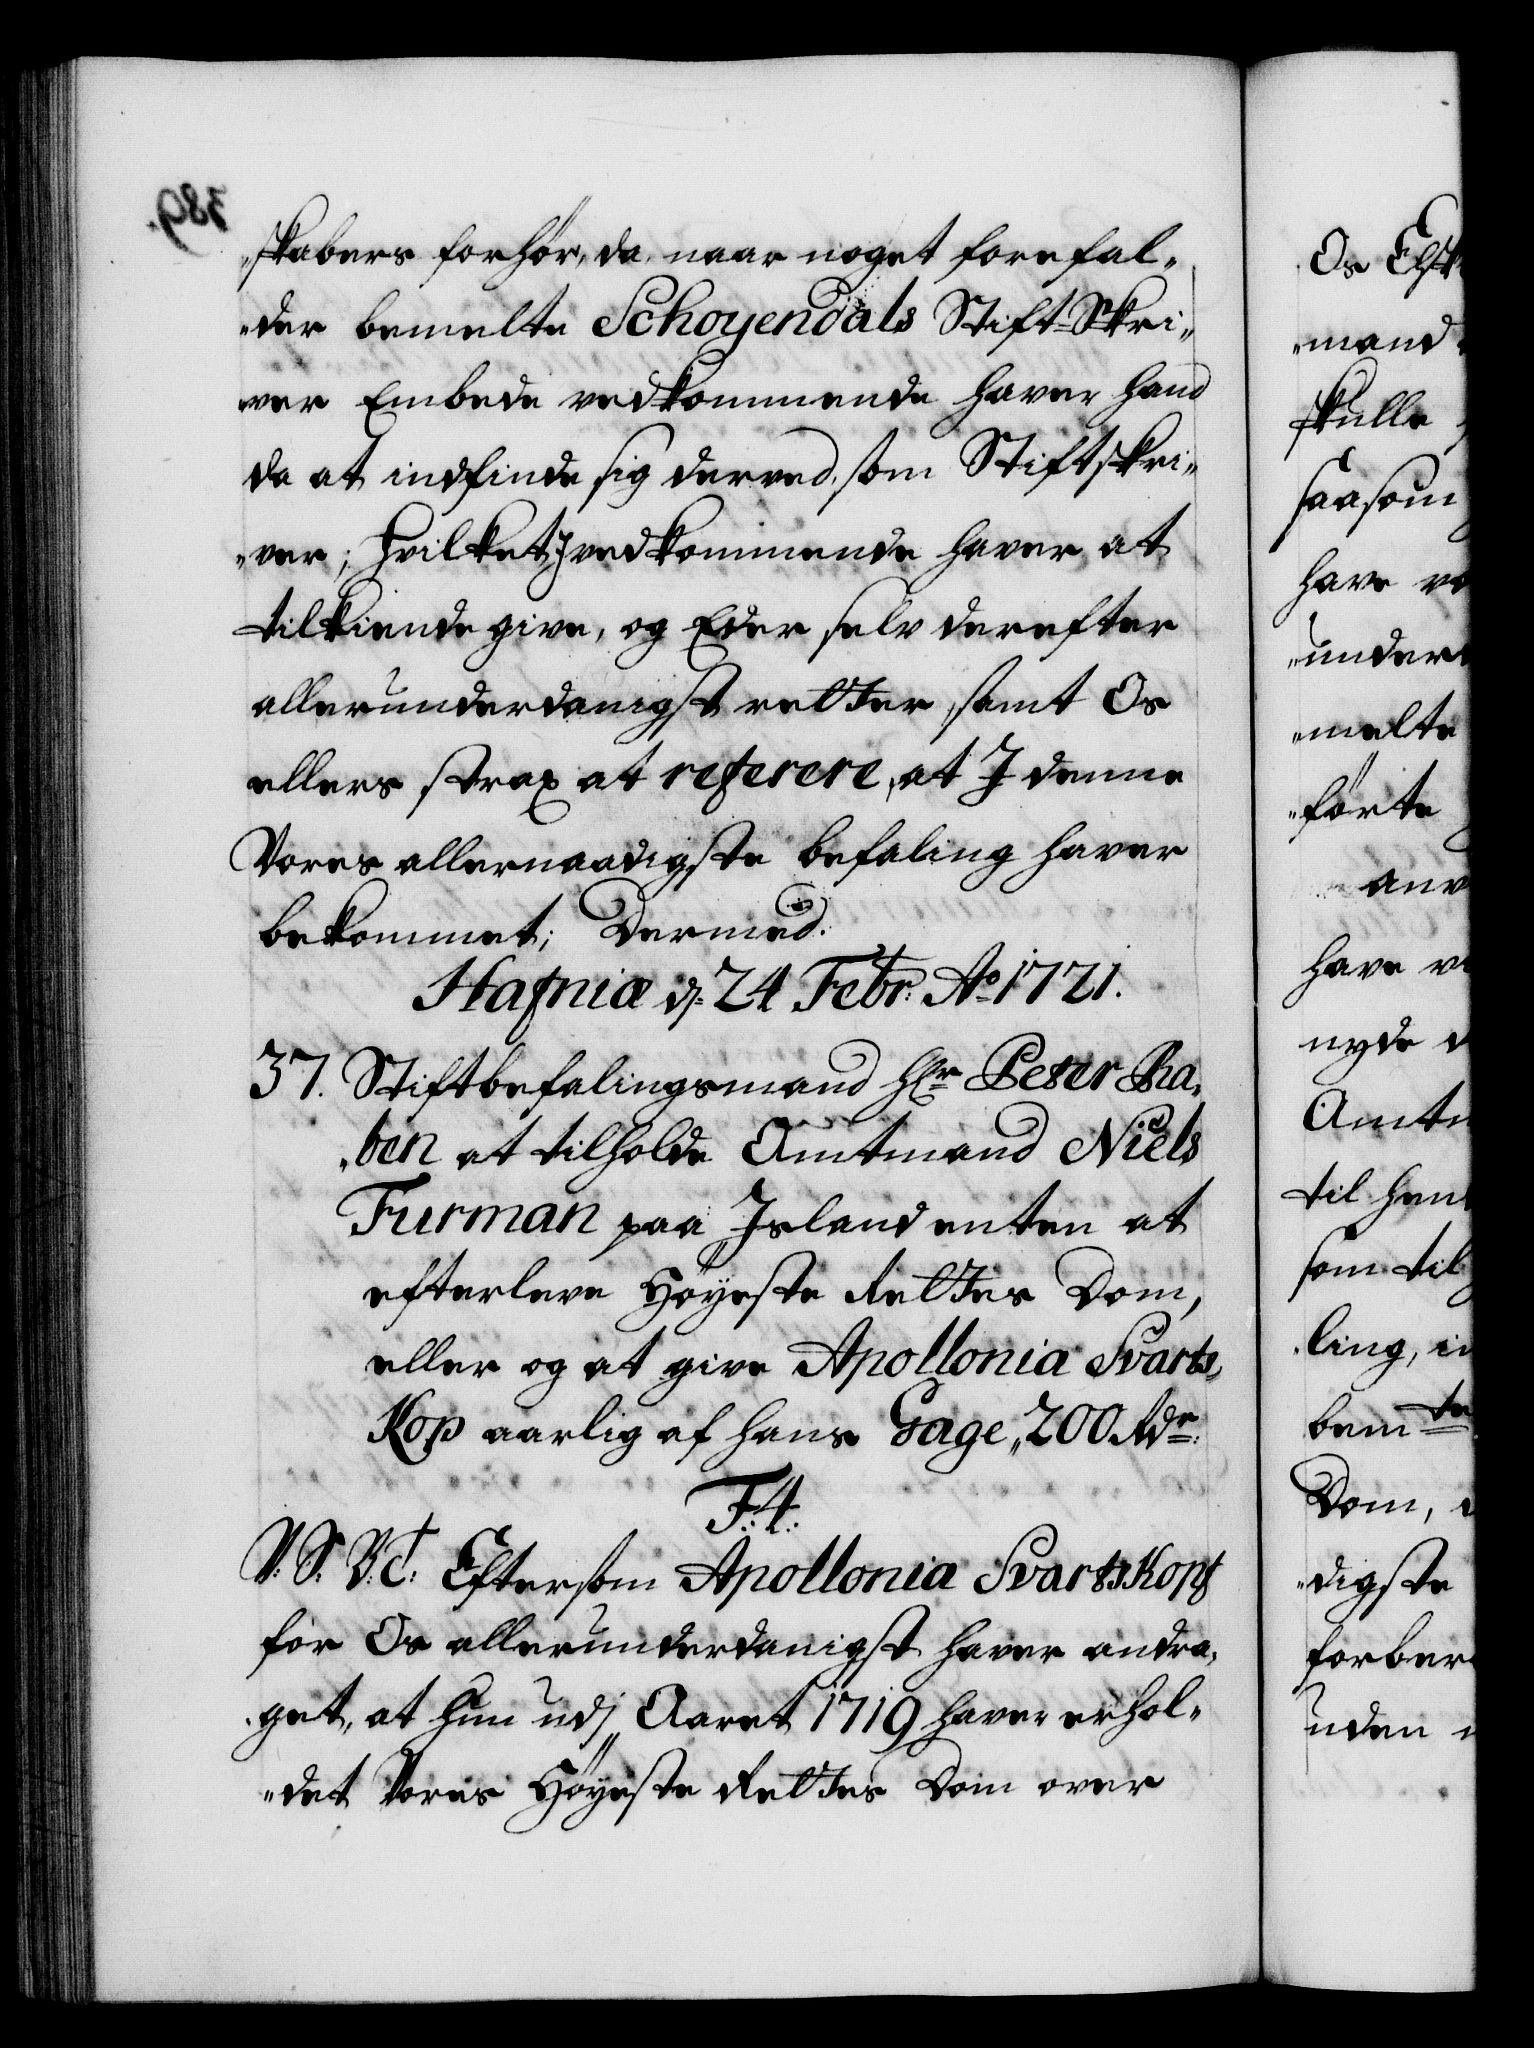 389.
„skabers forhør, da, naar noget forefal„
„der bemelte Schøyendals Stift-Skri„
„ver Embede vedkommende haver hand
da at indfinde sig derved, som Stiftskri„
„ver; Hvilket I vedkommende haver at
tilkiende give, og Eder selv derefter
allerunderdanigst retter, samt Os
ellers strax at referere, at I denne
Vores allernaadigste befaling haver
bekommet; Dermed.
Hafniæ d: 24 Febr: Ao 1721.
37. Stiftbefalingsmand Hr Peter Ra„
„ben at tilholde Amtmand Niels
Furman paa Island enten at
efterleve Høyeste Rettes Dom,
eller og at give Apollonia Svarts„
Kop aarlig af hans Gage, 200 Rdr:
F: 4:
V: S: V: T: Eftersom Apollonia SvartsKopf
for Os allerunderdanigst haver andra„
„get, at hun udj Aaret 1719 haver erhol„
„det Vores Høyeste Rettes Dom over
Os Elsk
„mand
skulle
saasom
have
„under
„melte
„førte
anv
have
nyde
Amtm
til hen
som til
„ling,
bemte
Dom,
„digste
forber
uden